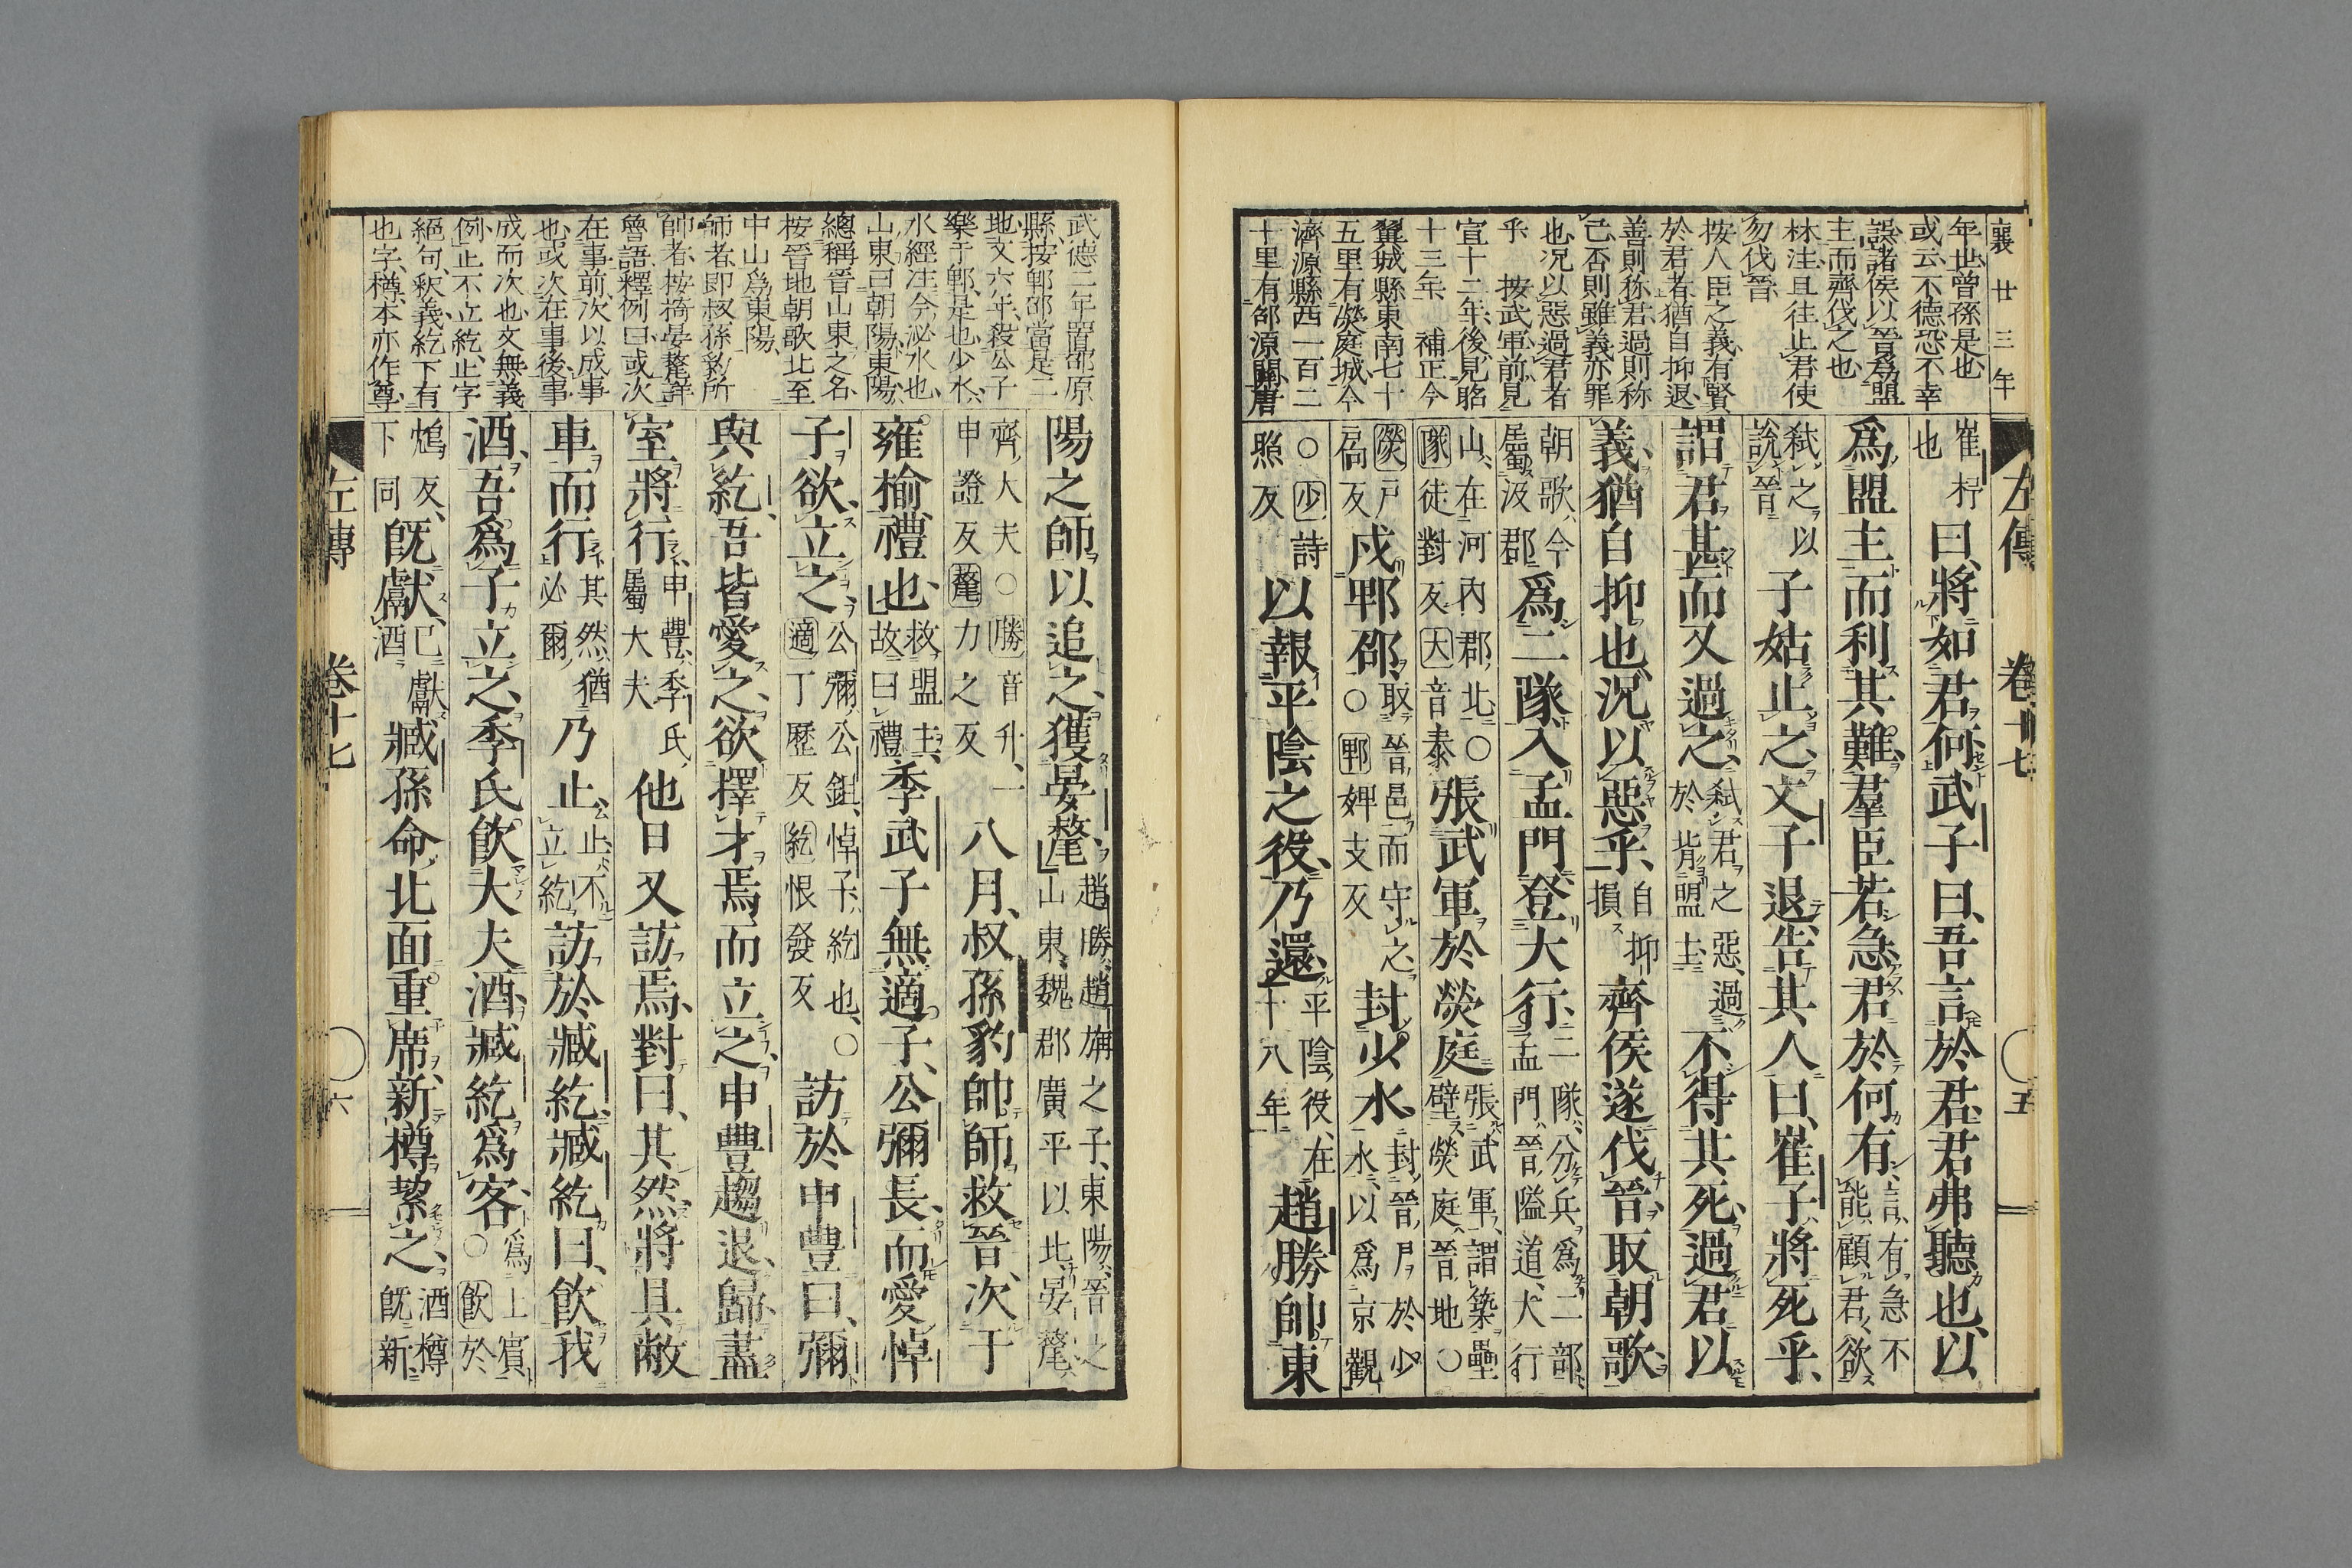 襄廿三年
年世曾孫是也
或云不德恐不幸
誤諸侯以晉爲盟
主而齊伐之也
林注且往止君使
勿伐晉
按人臣之義有賢
於君者猶自抑退
善則称君過則称
己否則雖義亦罪
也况以惡過君者
乎　按武軍前見
宣十二年後見昭
十三年　補正今
翼城縣東南七十
五里有熒庭城今
濟源縣西一百二
十里有郃源關唐
左傳　卷十七　五
崔杼
也
曰將如君何武子曰吾言於君君弗聽也以
爲盟主而利其難羣臣若急君於何有
言有急不
能顧君欲
弒之以
說晉
子姑止之文子退告其人曰崔子將死乎
謂君甚而又過之
弒君之惡過
於背盟主
不得其死過君以
義猶自抑也況以惡乎
自抑
損
齊侯遂伐晉取朝歌
朝歌今
屬汲郡
爲二隊入孟門登大行
二隊分兵爲二部
孟門晉隘道大行
山在河內郡北○
隊徒對反大音泰
張武軍於熒庭
張武軍謂築壘
壁熒庭晉地○
熒戶
扃反
戍郫邵
取晉邑而守之
○郫婢支反
封少水
封晉尸於少
水以爲京觀
○少詩
照反
以報平陰之役乃還
平陰役在
十八年
趙勝帥東
武德二年置邵原
縣按郫邵當是二
地文六年殺公子
樂于郫是也少水
水經注今泌水也
山東曰朝陽東陽
總稱晉山東之名
按晉地朝歌北至
中山爲東陽
師者即叔孫豹所
帥者按掎晏氂詳
魯語釋例曰或次
在事前次以成事
也或次在事後事
成而次也文無義
例止不立紇止字
絕句釈義紇下有
也字樽本亦作尊
陽之師以追之獲晏氂
趙勝趙旃之子東陽晉之
山東魏郡廣平以北晏氂
齊大夫○勝音升一
申證反氂力之反
八月叔孫豹帥師救晉次于
雍榆禮也
救盟主
故曰禮
季武子無適子公彌長而愛悼
子欲立之
公彌公鉏悼子紇也○
適丁歷反紇恨發反
訪於申豐曰彌
與紇吾皆愛之欲擇才焉而立之申豐趨退歸盡
室將行
申豐季氏
屬大夫
他日又訪焉對曰其然將具敝
車而行
其然猶
必爾
乃止
止不
立紇
訪於臧紇臧紇曰飲我
酒吾爲子立之季氏飲大夫酒臧紇爲客
爲上賓
○飲於
鴆反
下同
旣獻
已獻
酒
臧孫命北面重席新樽絜之
酒樽
旣新
左傳　卷十七　六